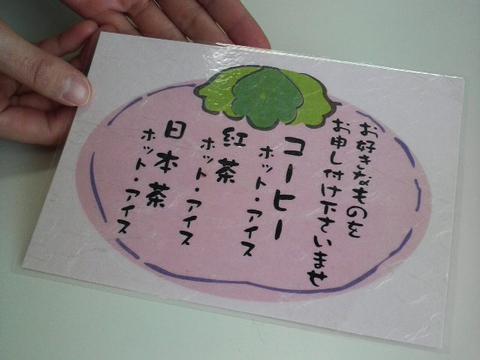 お好きなものを
お申し付け下さいませ
コーヒー
ホット・アイス
紅茶
ホット・アイス
日本茶
ホット・アイス